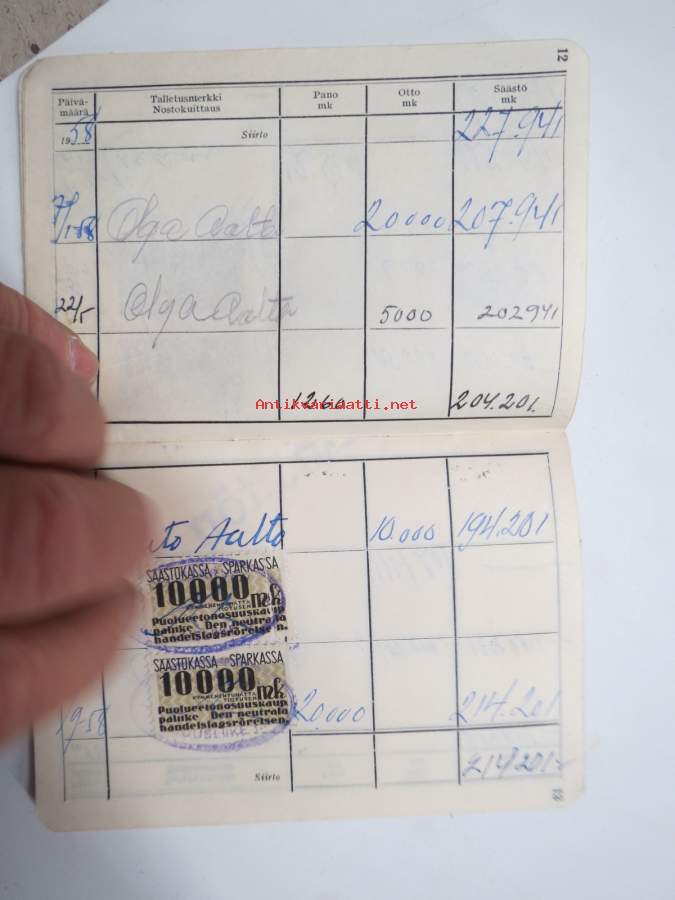 12
Päivä-
määrä
Talletusmerkki
Nostokuittaus
Pano
mk
Otto
mk
Säästö
mk
1958
Siirto
227.941
7/1-58 Olga Aalto 20000 207.941
22/5 Olga Aalto 5000 202941
1260 204.201.
Antikvariaatti.net
Aalto 10.000 194.201
SÄÄSTÖKASSA SPARKASSA
10000 mk
KYMMENENTUHATTA
TIOTUSEN
Puolueetonosuuskaup
paluke Den neutrala
handelslagsrörelse n.
SÄÄSTÖKASSA SPARKASSA
10000 mk
KYMMENENTUHATTA
TIOTUSEN
Puolueetonosuuskaup.
paluke Den neutrala
handelslagsrörelsen
1958 20.000 214.201
Siirto 214201.-
13